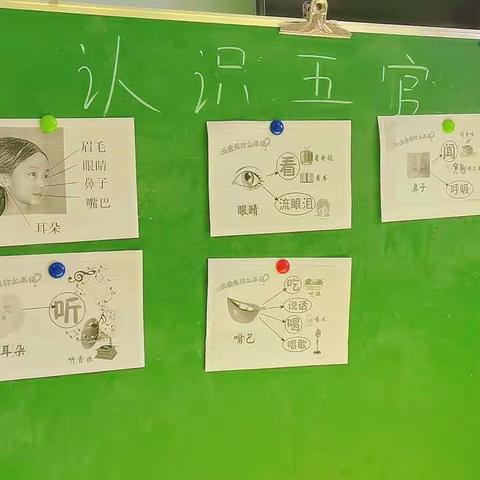 认识五官
眉毛
眼睛
鼻子
嘴巴
耳朵
五官有什么本领?
看
看电视
看书
流眼泪
眼睛
五官有什么本领?
闻
呼吸
鼻子
有什么本领?
听
耳朵
听音乐
五官有什么本领?
吃
吃饭
说话
喝
喝水
唱歌
嘴巴